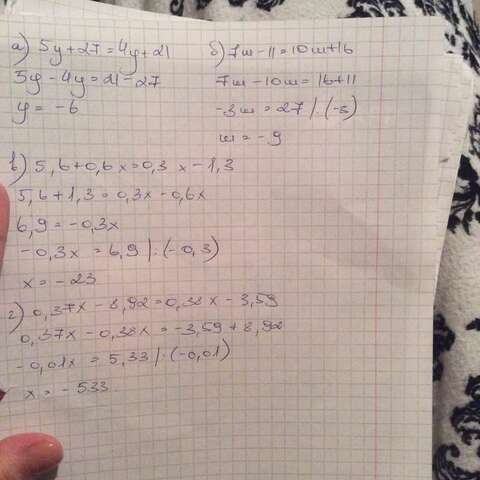 а) 5y+27=4y+21
5y-4y=21-27
y=-6
б) 7m-11=10m+16
7m-10m=16+11
-3m=27 |:(-3)
m=-9
в) 5,6+0,6x=0,3x-1,3
5,6+1,3=0,3x-0,6x
6,9=-0,3x
-0,3x=6,9 |:(-0,3)
x=-23
г) 0,37x-8,92=0,38x-3,59
0,37x-0,38x=-3,59+8,92
-0,01x=5,33 |:(-0,01)
x=-533